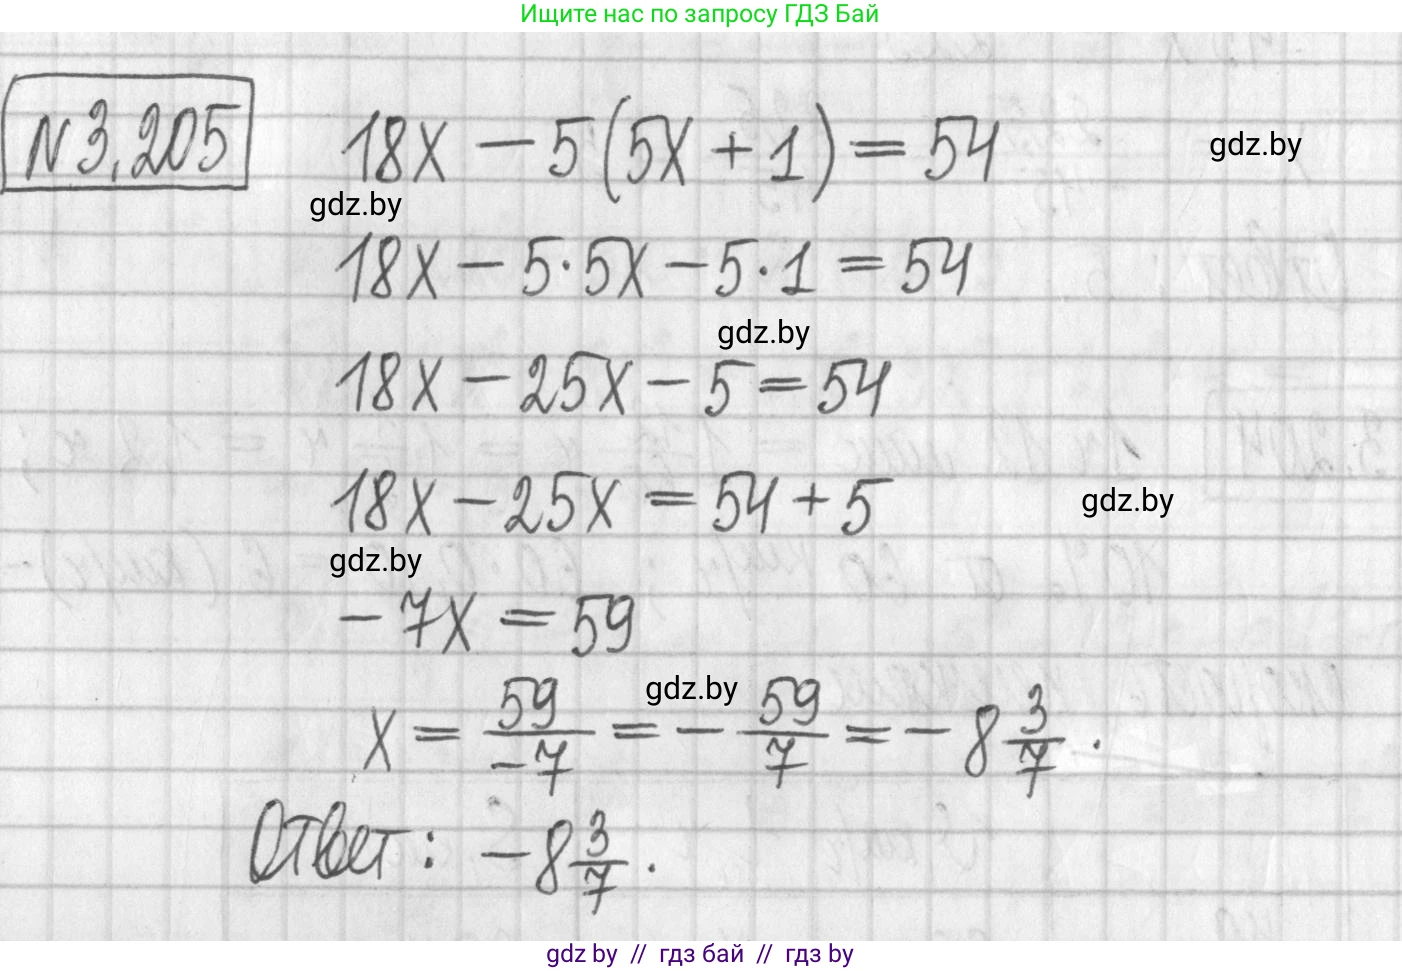 Ищите нас по запросу ГДЗ Бай
N 3,205
18x - 5(5x + 1) = 54
gdz.by
gdz.by
18x - 5·5x - 5·1 = 54
gdz.by
18x - 25x - 5 = 54
18x - 25x = 54 + 5
gdz.by
gdz.by
-7x = 59
gdz.by
x = 59/-7 = - 59/7 = - 8 3/7 .
Ответ: - 8 3/7 .
gdz by // гдз бай // гдз by